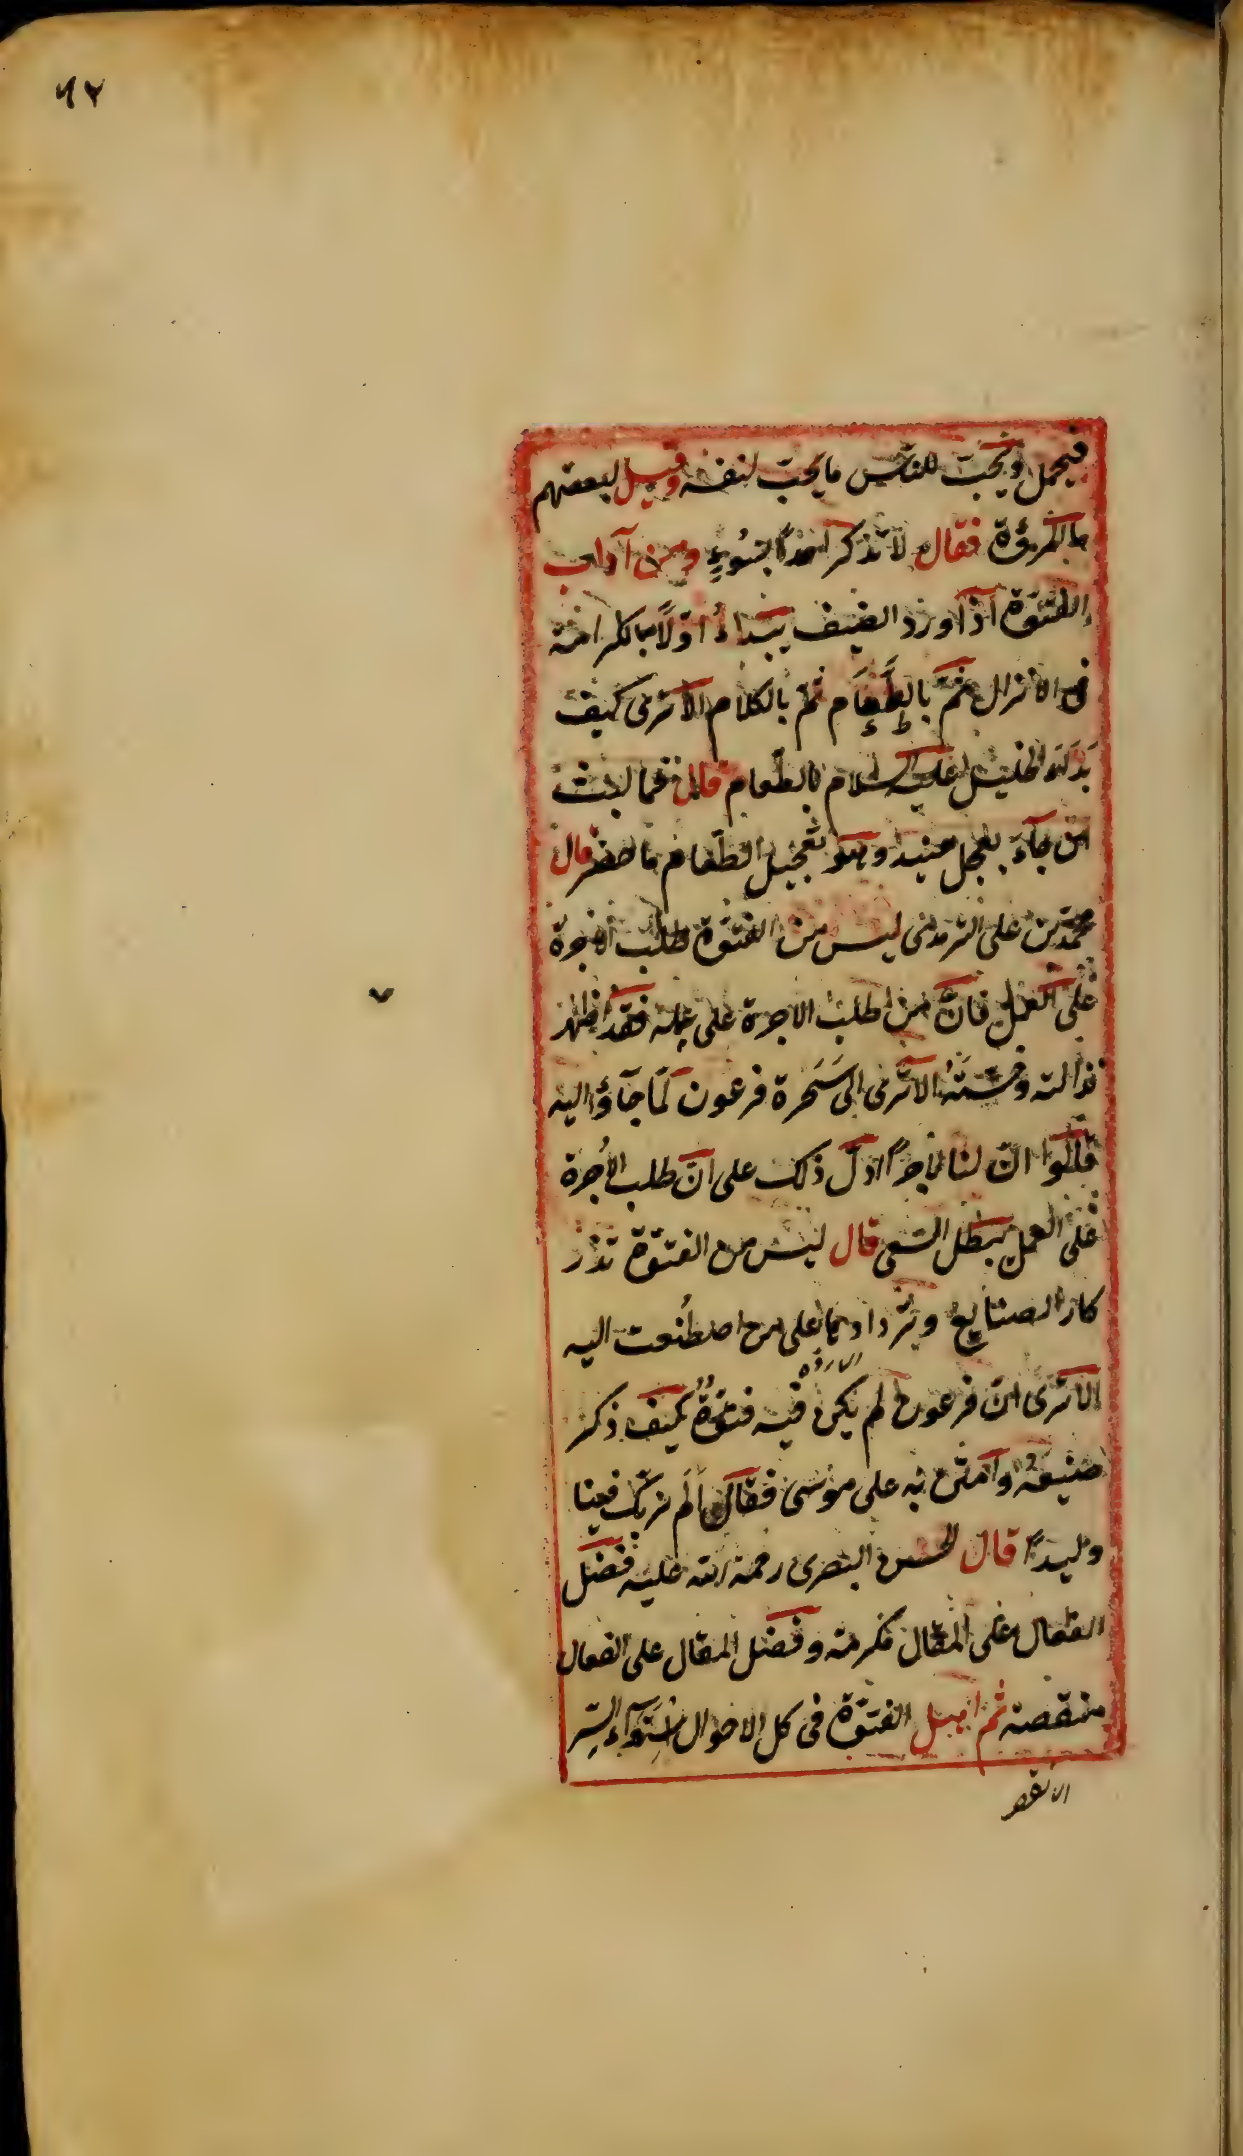 ٩٢
فيجمل ويحب للناس ما يحب لنفسه وقيل لبعضهم
ما المروّة فقال لا تذكر احدًا بسُوءٍ ومن آداب
الفتوّة اذا ورد الضيف يبداءُ اوّلاً بالكرامة
فى الانزال ثمّ بالطَّعَام ثمّ بالكلام الا ترى كيف
بدله الخليل عليه السلام بالطّعام قال فما لبث
ان جآءَ بعجل حنيذ وهو تعجيل الطّعام ما حضر قال
محمّد بن على الترمذى ليس من الفتوّة طلب الاجرة
على العمل فانّ من طلب الاجرة على عمله فقد اظهر
نذالته وخسّتهُ الا ترى الى سَحَرة فرعون لمّا جآؤا اليه
قالوا ائنّ لنا لاجرًا دلّ ذلك على انّ طلب الاُجرة
على العمل يبطل السّعى قال ليس من الفتوّة تذ
كار الصنايع وترداد بها على من اصطُنعت اليه
الا ترى انّ فرعون لم يكن فيه فتوّةٌ كيف ذكر
صنيعه وامتنّ به على موسى فقال الم نربّك فينا
وليدًا قال الحسن البصرى رحمة الله عليه فضل
الفعال على المقال مكرمة وفضل المقال على الفعال
منقصة ثم اصل الفتوّة فى كل الاحوال استوآء السّر